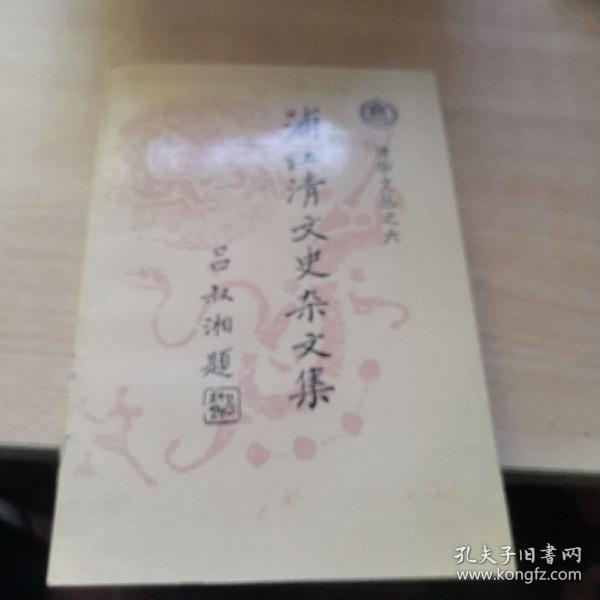 清华文丛之六
浦江清文史杂文集
吕叔湘题
孔夫子旧书网
www.kongfz.com